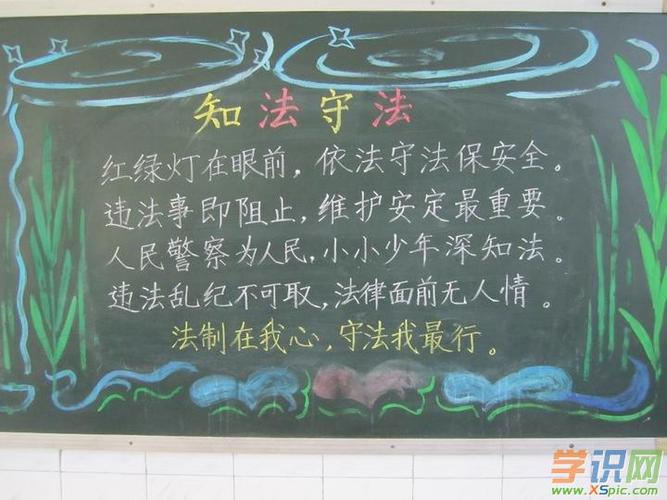 知法守法
红绿灯在眼前，依法守法保安全。
违法事即阻止，维护安定最重要。
人民警察为人民，小小少年深知法。
违法乱纪不可取，法律面前无人情。
法制在我心，守法我最行。
学识网
www.XSpic.com